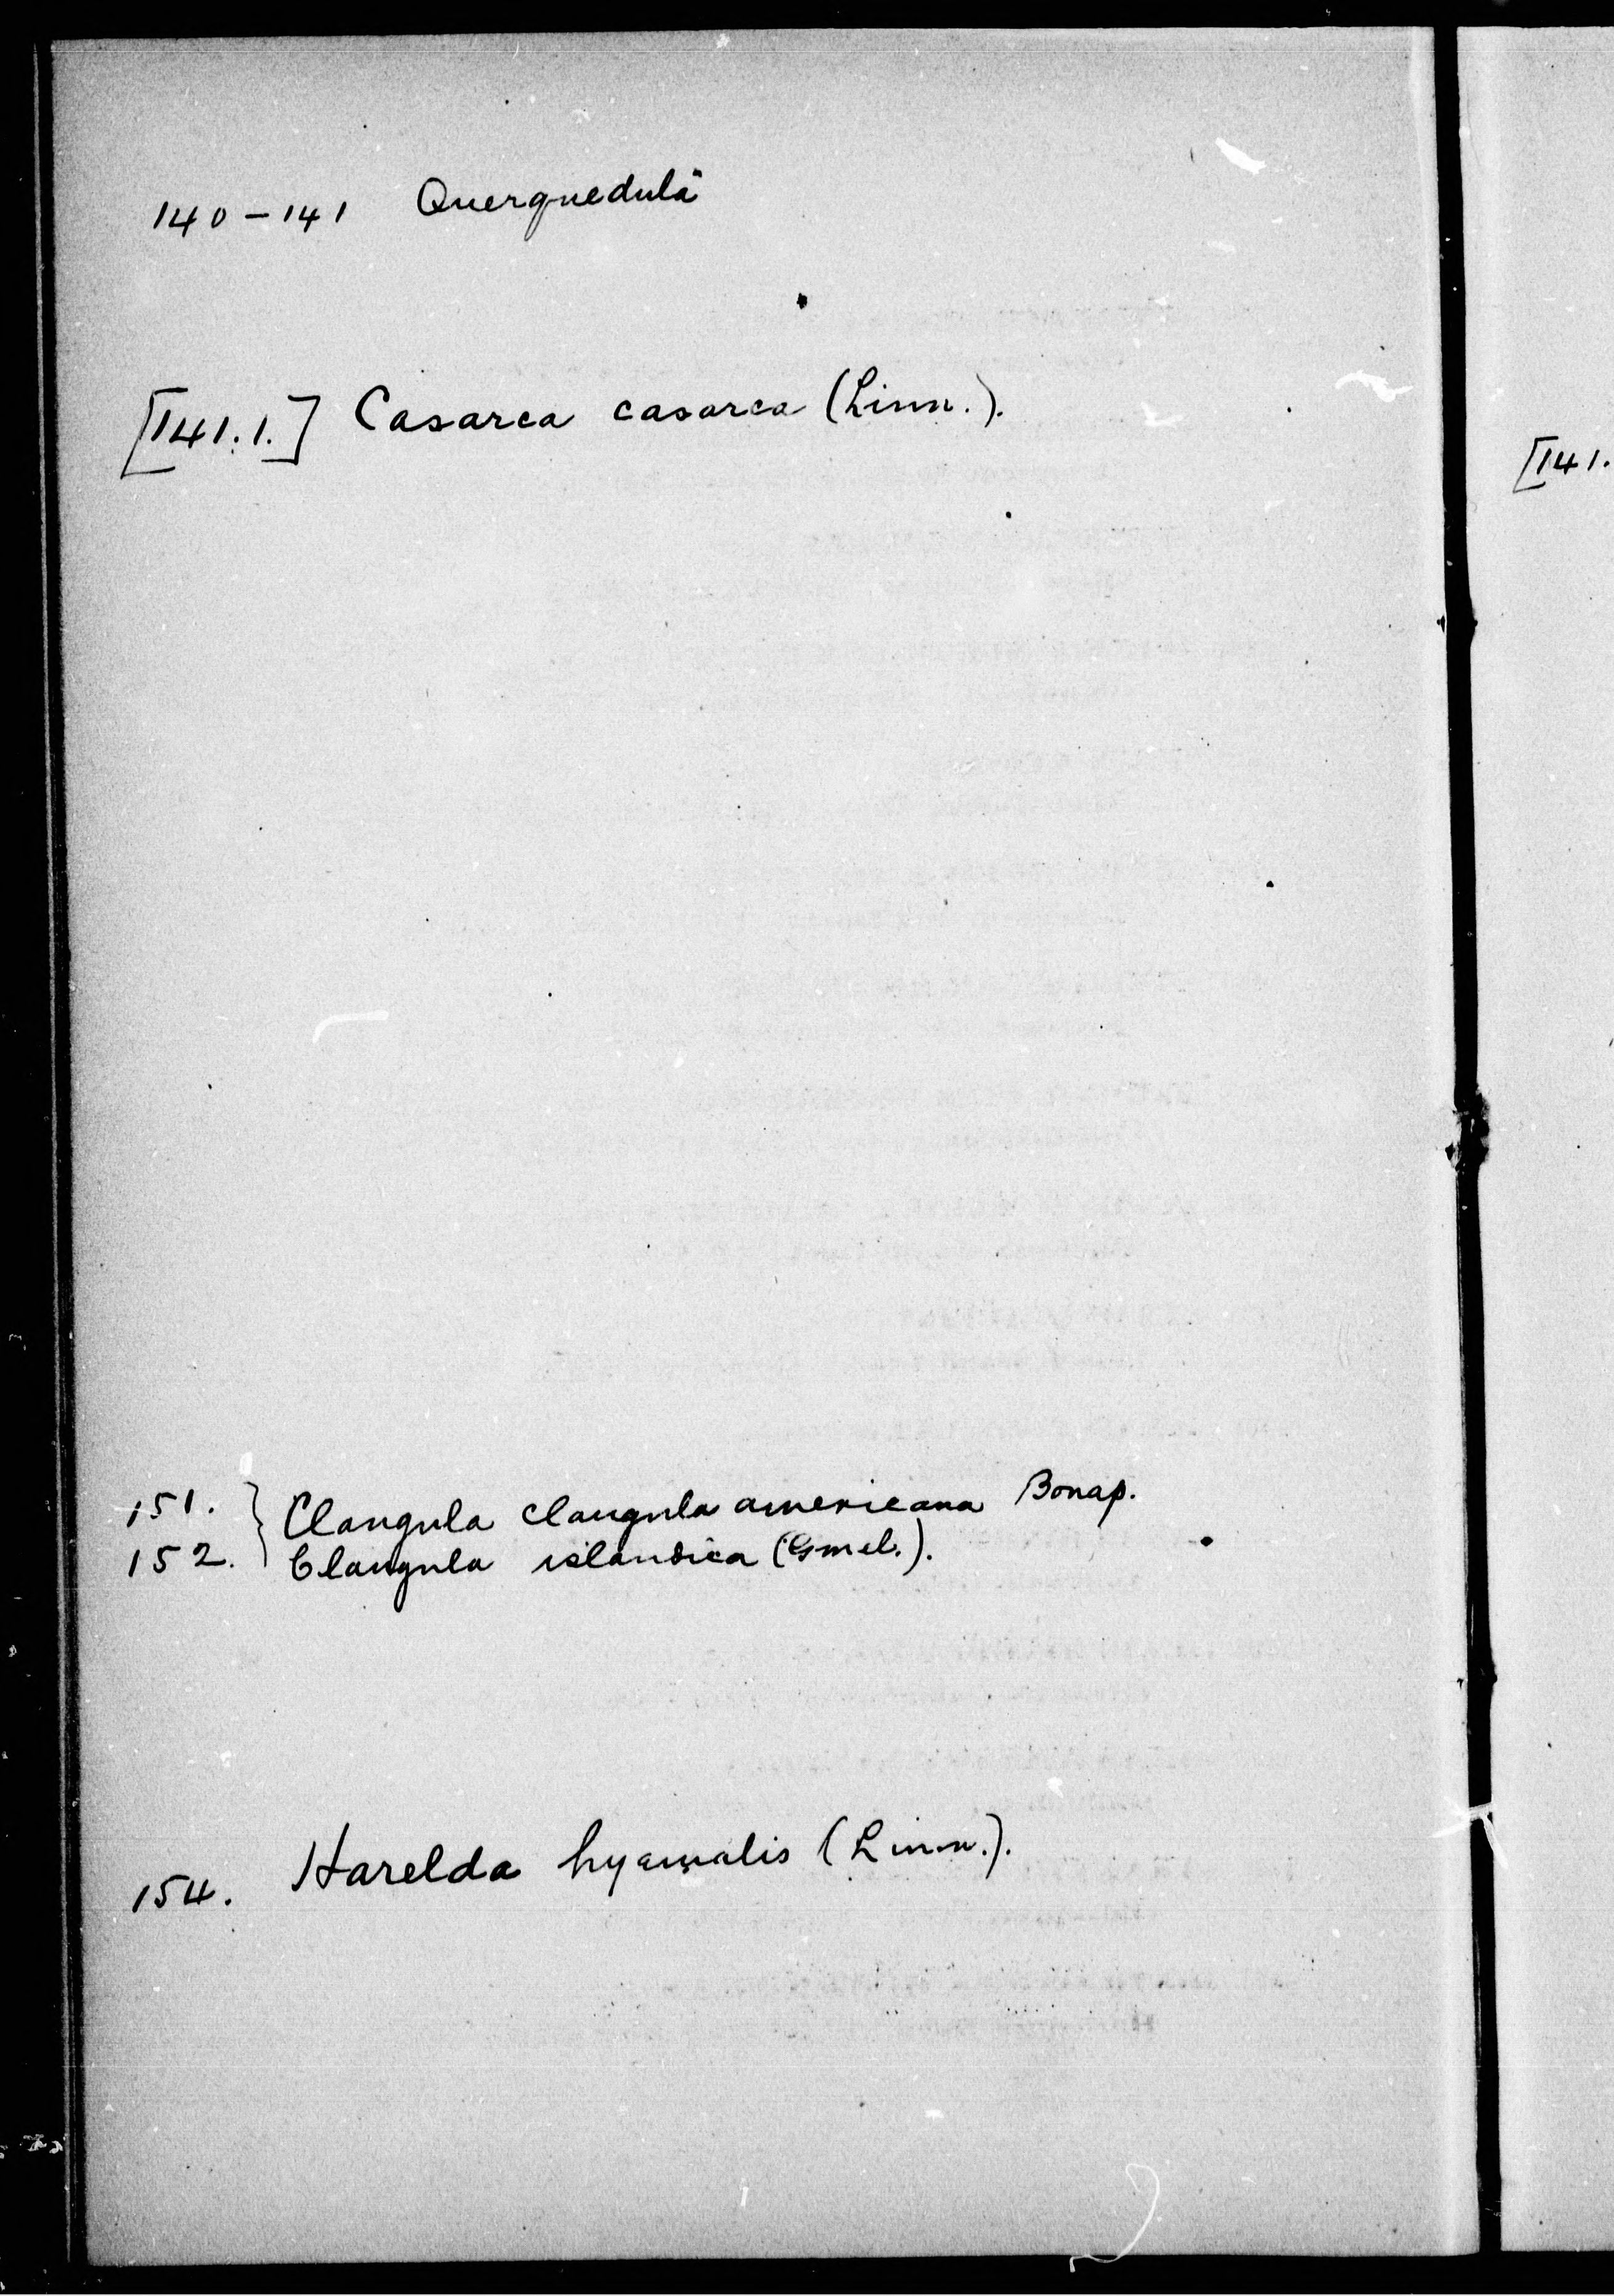 140-141 Querquedula
[141.1.] Casarca casarca (Linn.).
[141.
151. } Clangula clangula americana Bonap.
152. } Clangula islandica (Gmel.).
154. Harelda hyemalis (Linn.).